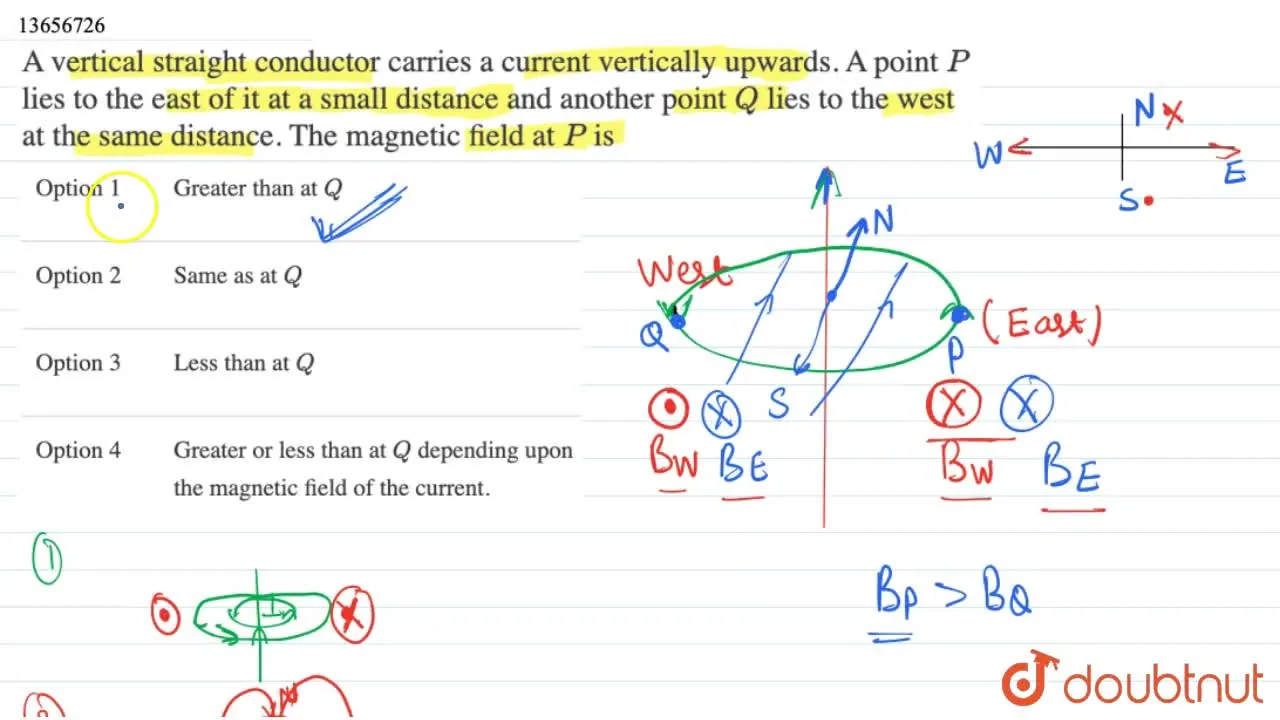 13656726
A vertical straight conductor carries a current vertically upwards. A point P
lies to the east of it at a small distance and another point Q lies to the west
at the same distance. The magnetic field at P is
Option 1 Greater than at Q
Option 2 Same as at Q
Option 3 Less than at Q
Option 4 Greater or less than at Q depending upon
the magnetic field of the current.
N X
W E
S
N
West
Q P (East)
S X X X
BW BE BW BE
BP > BQ
1
X
N
doubtnut